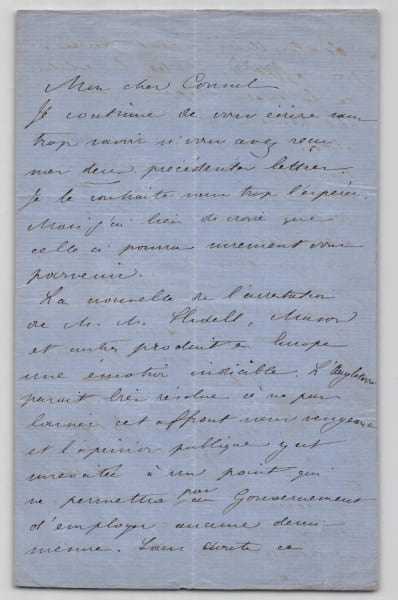 Mon cher Consul
Je continue de vous écrire sans
trop savoir si vous avez reçu
mes deux précédentes lettres.
Je le souhaite sans trop l'espérer.
Mais j'ai lieu de croire que
celle ci pourra surement vous
parvenir.
La nouvelle de l'arrestation
de M. M. Slidell, Mason
et autres produit en Europe
une émotion indicible. L'Angleterre
parait bien résolue à ne pas
laisser cet affront sans vengeance
et l'opinion publique y est
surexcitée à un point qui
ne permettra pas au Gouvernement
d'employer aucune demi
mesure. Sans doute ce